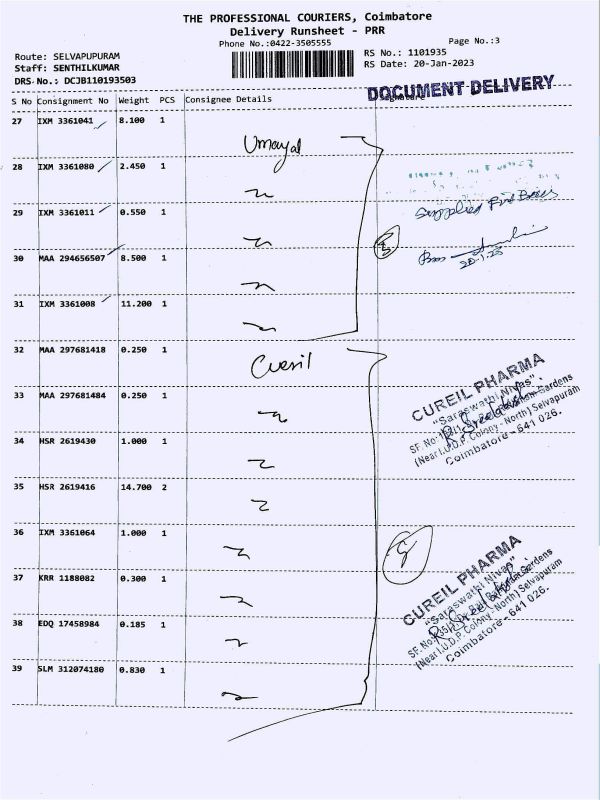 THE PROFESSIONAL COURIERS, Coimbatore
Delivery Runsheet - PRR
Phone No.:0422-3505555
Page No.:3
Route: SELVAPUPURAM
RS No.: 1101935
Staff: SENTHILKUMAR
RS Date: 20-Jan-2023
DRS No.: DCJB110193503
DOCUMENT DELIVERY
S No Consignment No Weight PCS Consignee Details Signature
27 IXM 3361041 8.100 1
Umayal
28 IXM 3361080 2.450 1
29 IXM 3361011 0.550 1
Supplied Five Boxes
30 MAA 294656507 8.500 1
20-1-23
31 IXM 3361008 11.200 1
32 MAA 297681418 0.250 1
Cureil
33 MAA 297681484 0.250 1
CUREIL PHARMA
"Saraswathi Nivas"
(Near I.U.D.P. Colony - North) Selvapuram
Coimbatore - 641 026.
34 HSR 2619430 1.000 1
35 HSR 2619416 14.700 2
36 IXM 3361064 1.000 1
37 KRR 1188082 0.300 1
CUREIL PHARMA
"Saraswathi Nivas"
(Near I.U.D.P. Colony - North) Selvapuram
Coimbatore - 641 026.
38 EDQ 17458984 0.185 1
39 SLM 312074180 0.830 1